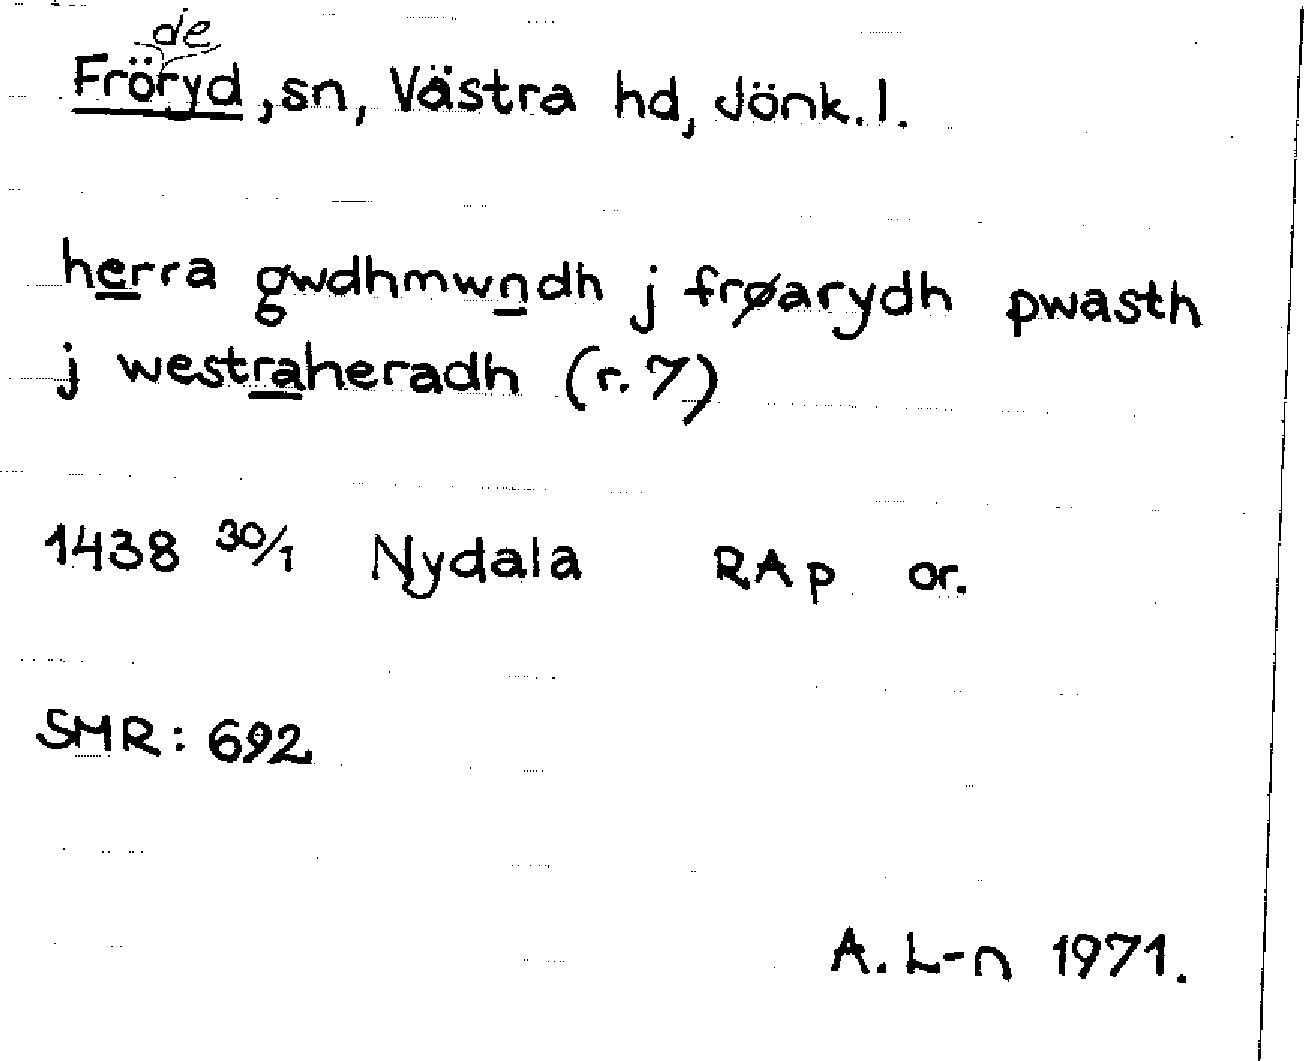 Fröderyd, sn, Västra hd, Jönk. l.
herra gwdhmwndh j frøarydh pwasth
j westraheradh (r. 7)
1438 30/1 Nydala RAp or.
SMR: 692
A. L-n 1971.